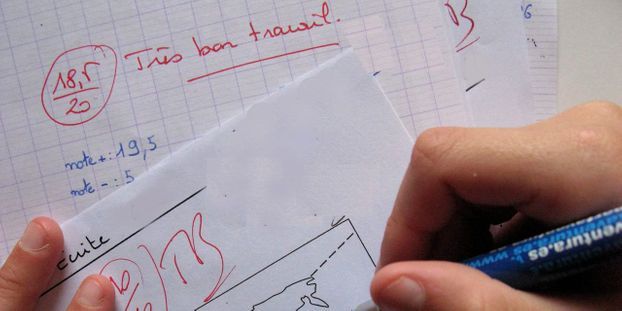 18,5 Très bon travail.
20
note + : 19,5
note - : 5
Ecrite
TB
B
ventura.es